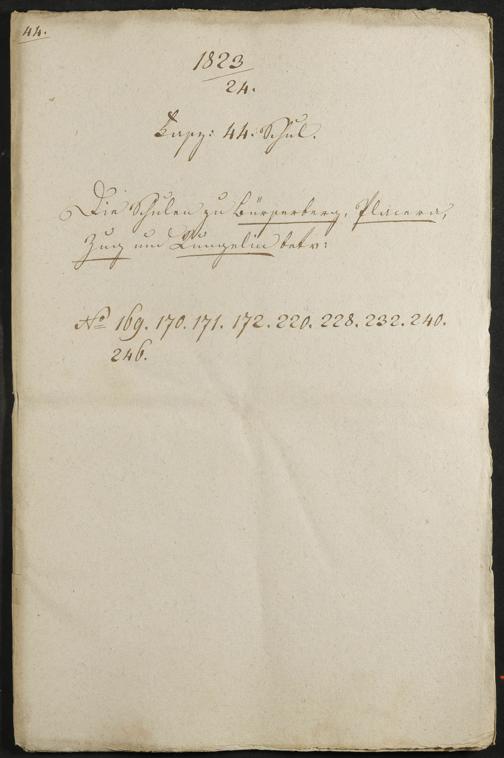 44.
1823
24.
Fasz: 44. Schul.
Die Schulen zu Bürserberg, Plazera,
Zug und betr:
No 169. 170. 171. 172. 220. 228. 232. 240.
246.